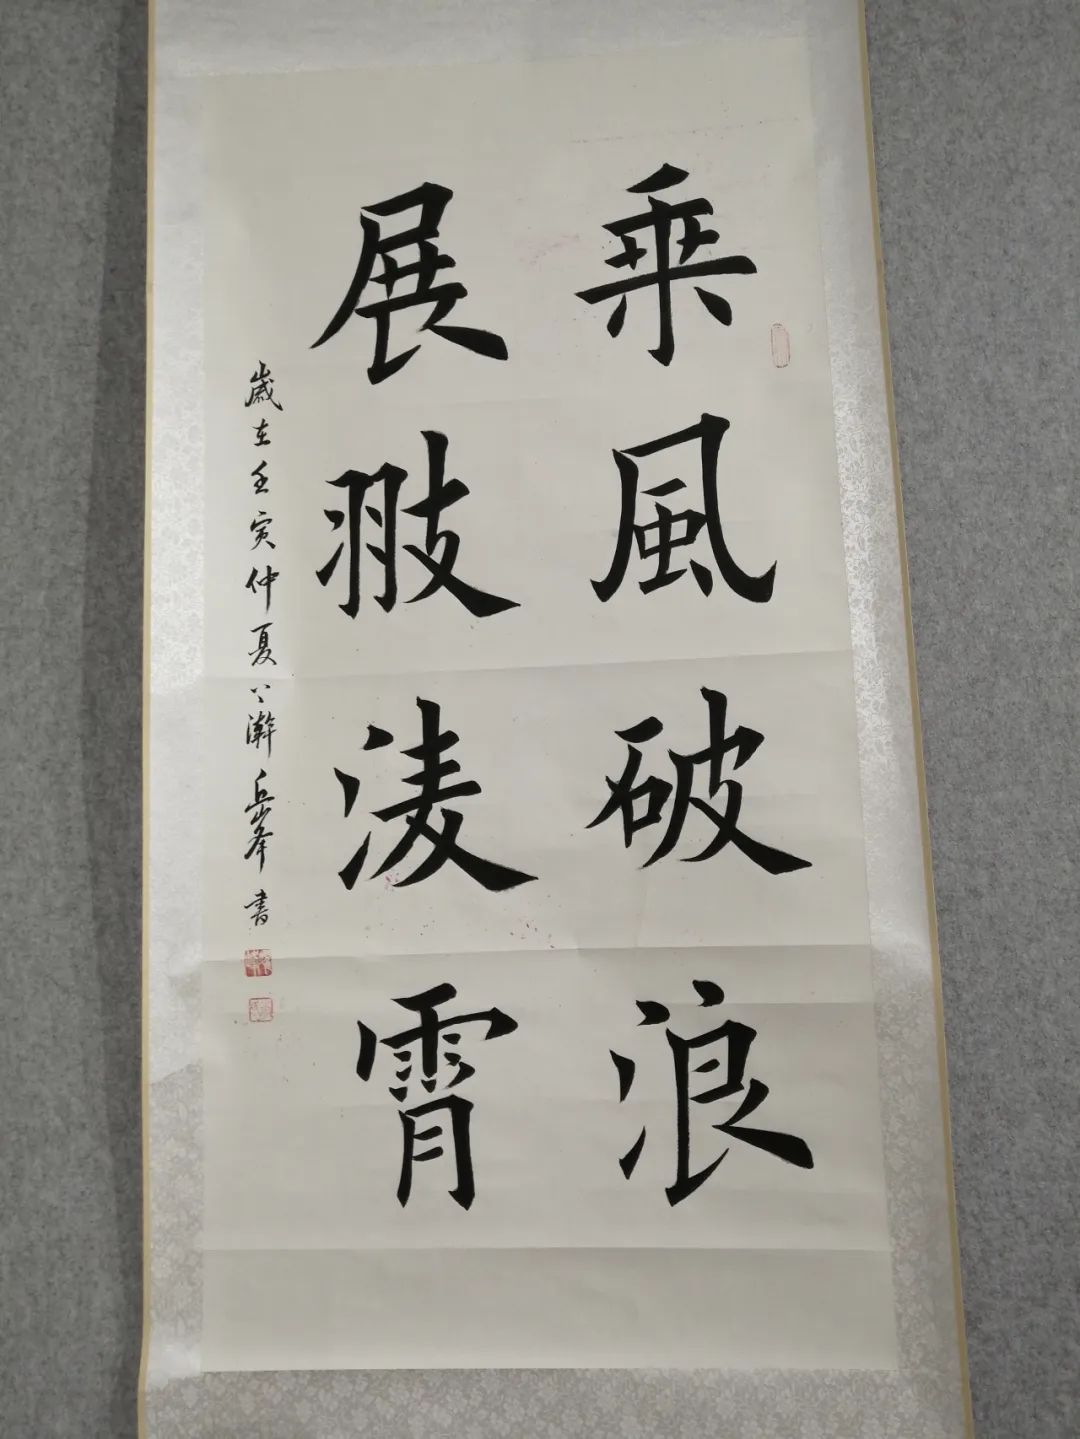 乘風破浪
展翅淩霄
歲在壬寅仲夏上澣岳峯書